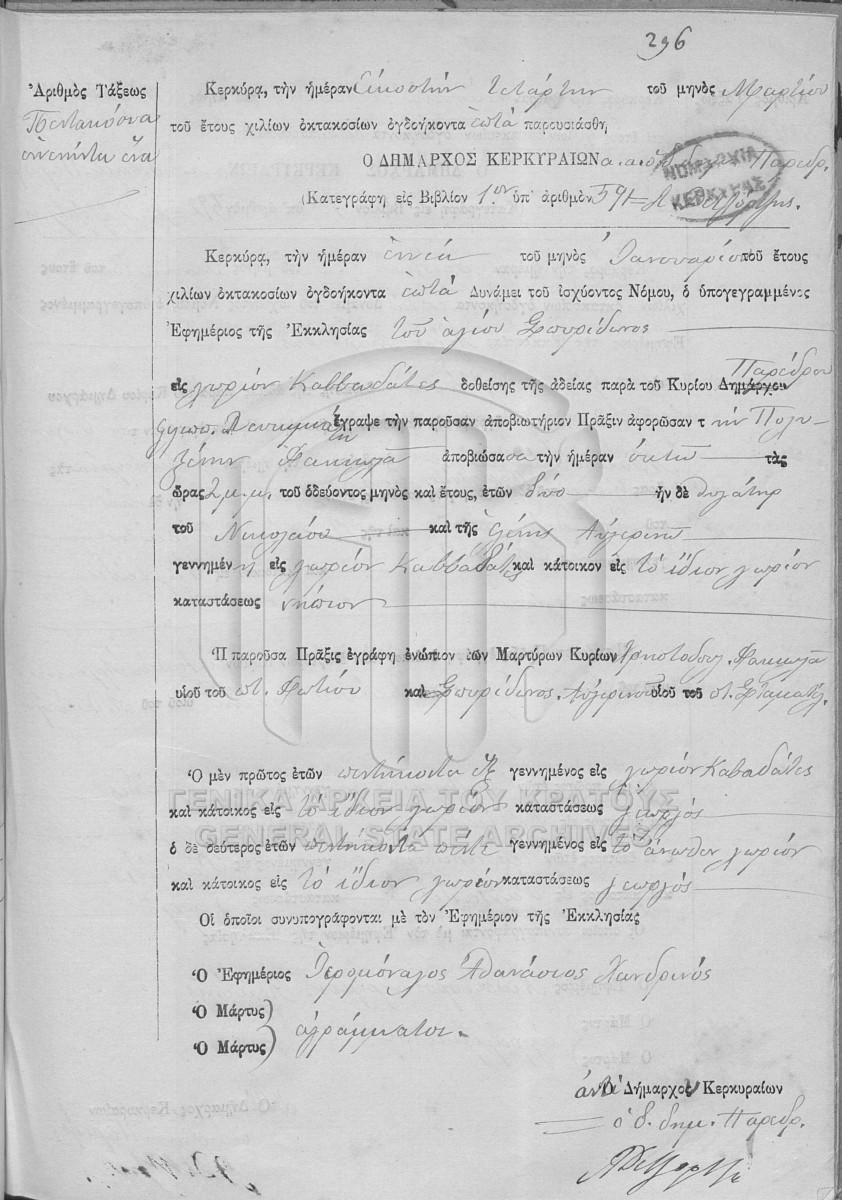 296
Ἀριθμὸς Τάξεως
Πεντακόσια
ἐννενήντα ἕνα
Κερκύρᾳ, τὴν ἡμέραν εἰκοστὴν τετάρτην τοῦ μηνὸς Μαρτίου
τοῦ ἔτους χιλίων ὀκτακοσίων ὀγδοήκοντα ἑπτὰ παρουσιάσθη
Ο ΔΗΜΑΡΧΟΣ ΚΕΡΚΥΡΑΙΩΝ Παρεδρ.
ΝΟΜΑΡΧΙΑ ΚΕΡΚΥΡΑΣ
(Κατεγράφη εἰς Βιβλίον 1ον ὑπ' ἀριθμὸν 591
Κερκύρᾳ, τὴν ἡμέραν ἐννέα τοῦ μηνὸς Ἰανουαρίου τοῦ ἔτους
χιλίων ὀκτακοσίων ὀγδοήκοντα ἑπτὰ Δυνάμει τοῦ ἰσχύοντος Νόμου, ὁ ὑπογεγραμμένος
Ἐφημέριος τῆς Ἐκκλησίας τοῦ ἁγίου Σπυρίδωνος
Παρέδρου
εἰς χωρίον Καββαδάτες δοθείσης τῆς ἀδείας παρὰ τοῦ Κυρίου Δημάρχου
ἔγραψε τὴν παροῦσαν ἀποβιωτήριον Πρᾶξιν ἀφορῶσαν τ ὴν Πολυ-
ξένην Φακιολᾶ ἀποβιώσασα τὴν ἡμέραν ὀκτὼ τὰς
ὥρας 2 μ.μ. τοῦ ὁδεύοντος μηνὸς καὶ ἔτους, ἐτῶν δύο ἦν δὲ θυγάτηρ
τοῦ Νικολάου καὶ τῆς Ἑλένης Αὐγερινοῦ
γεννημένη εἰς χωρίον Καββαδάτες καὶ κάτοικον εἰς τὸ ἴδιον χωρίον
καταστάσεως νήπιον
Ἡ παροῦσα Πρᾶξις ἐγράφη ἐνώπιον τῶν Μαρτύρων Κυρίων Χριστοδούλ. Φακιολᾶ
υἱοῦ τοῦ ποτ. Φωτίου καὶ Σπυρίδωνος Αὐγερινοῦ υἱοῦ τοῦ ποτ. Σταματέλ.
Ὁ μὲν πρῶτος ἐτῶν πεντήκοντα ἓξ γεννημένος εἰς χωρίον Καβαδάτες
καὶ κάτοικος εἰς τὸ ἴδιον χωρίον καταστάσεως γεωργός
ὁ δὲ δεύτερος ἐτῶν πεντήκοντα πέντε γεννημένος εἰς τὸ ἄνωθεν χωρίον
καὶ κάτοικος εἰς τὸ ἴδιον χωρίον καταστάσεως γεωργός
Οἱ ὁποῖοι συνυπογράφονται μὲ τὸν Ἐφημέριον τῆς Ἐκκλησίας
Ὁ Ἐφημέριος Ἱερομόναχος Ἀθανάσιος Χανδρινός
Ὁ Μάρτυς)
Ὁ Μάρτυς) ἀγράμματοι.
ἀντὶ Ὁ Δήμαρχος Κερκυραίων
ὁ δ. δημ. Παρεδρ.
ΓΕΝΙΚΑ ΑΡΧΕΙΑ ΤΟΥ ΚΡΑΤΟΥΣ
GENERAL STATE ARCHIVES